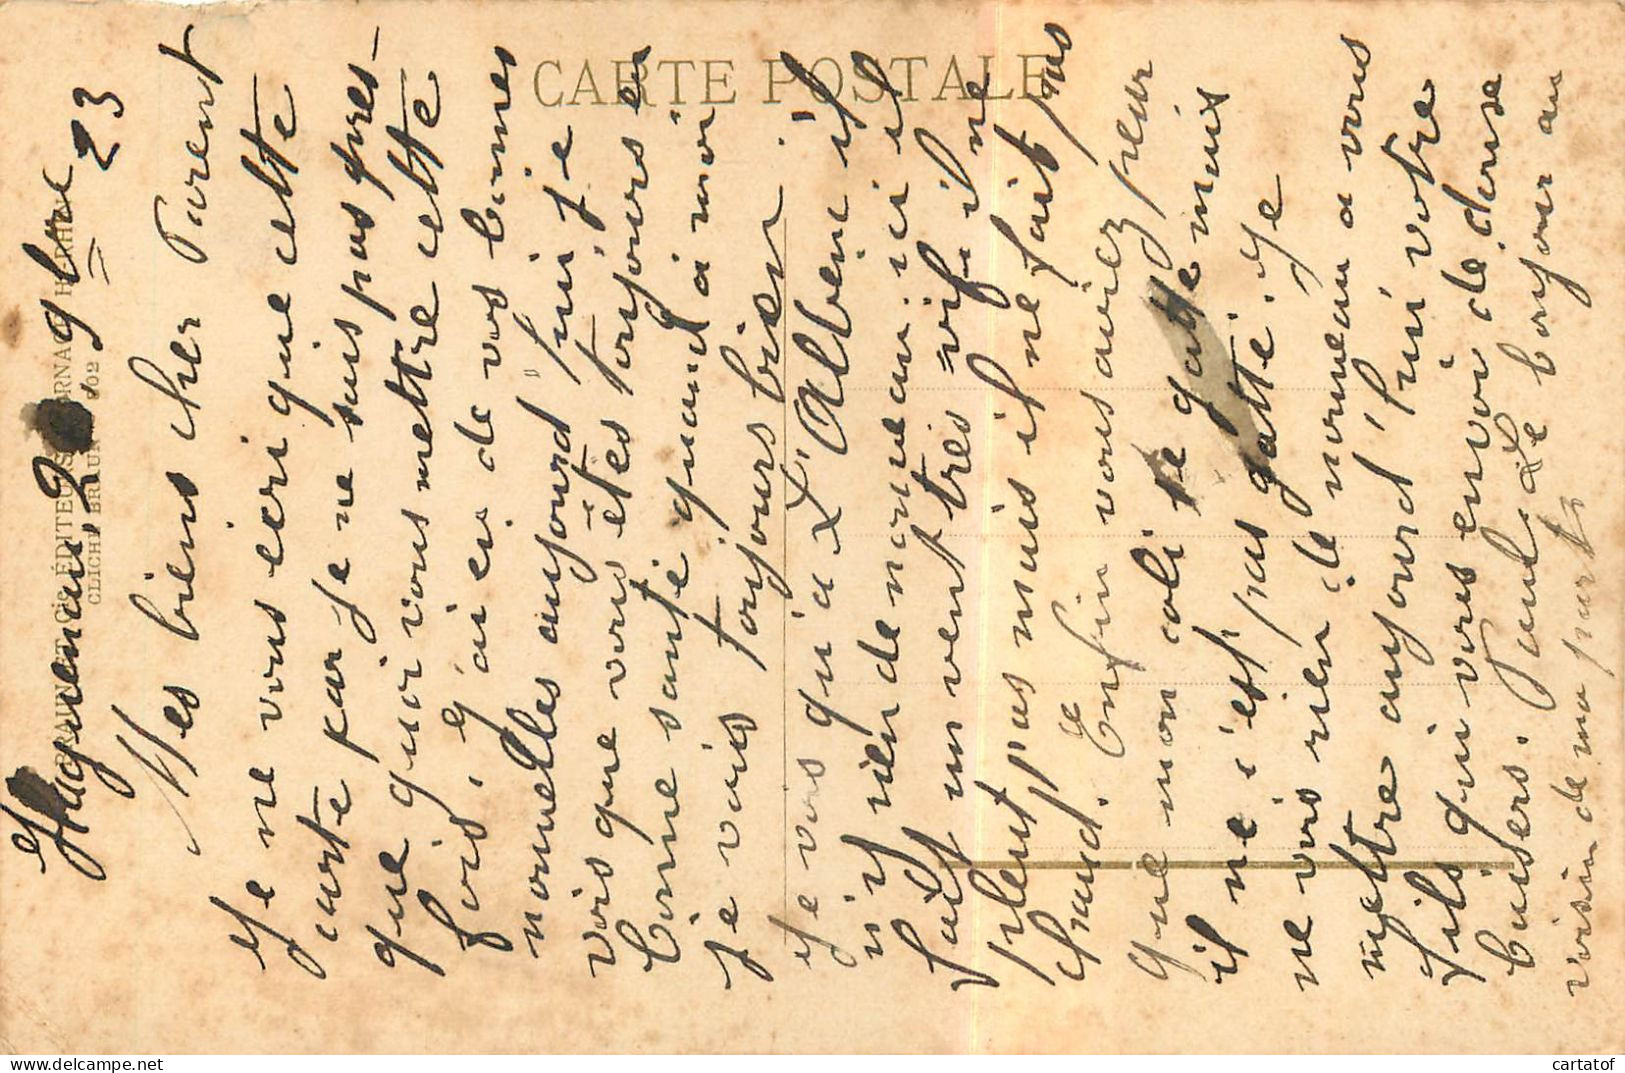 Haguenau 2 9bre 23
Mes biens cher Parent
Je ne vous ecri que cette
carte par je ne suis pas pres-
que quoi vous mettre cette
fois, j'ai eu de vos bonnes
nouvelles aujourd'hui je
vois que vous êtes toujours en
bonne santé quand à moi
je vais toujours bien.
je vois qu'a L'Albenc il
n'y rien de nouveau ici il
fait un vent très vif il ne
pleut pas mais il ne fait pas
chaud. Enfin vous aviez peur
que mon coli se gatte mais
il ne c'est pas gatté. Je
ne vois rien de nouveau a vous
mettre aujourd'hui votre
fils qui vous envoi de douse
baisers. Paul Le bonjour au
voisin de ma part
CARTE POSTALE
BRAUN ET Cie ÉDITEURS DORNACH
CLICHÉ BRAUN